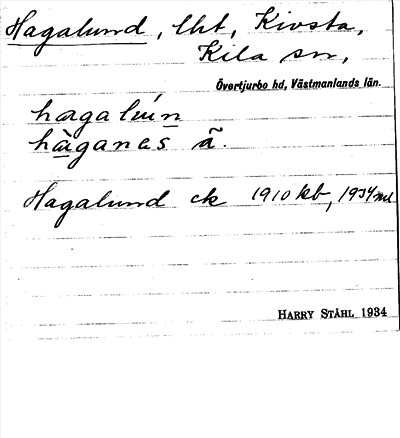 Hagalund, lht, Kivsta,
Kila sn,
Övertjurbo hd, Västmanlands län.
hagalún
hàganes ã.
Hagalund ck 1910 kb, 1934 ml
HARRY STÅHL 1934